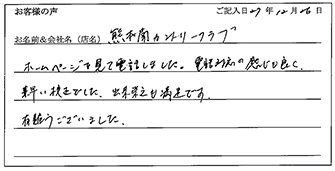 お客様の声
ご記入日27年12月26日
お名前＆会社名（店名）熊本南カントリークラブ
ホームページを見て電話しました。電話対応の感じも良く、
素早い校正でした。出来栄えも満足です。
有難うございました。